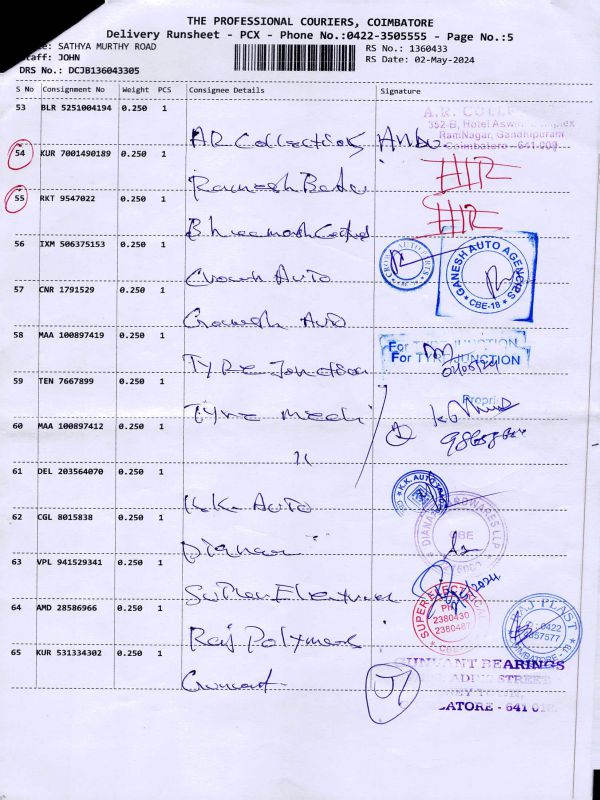 THE PROFESSIONAL COURIERS, COIMBATORE
Delivery Runsheet - PCX - Phone No.:0422-3505555 - Page No.:5
: SATHYA MURTHY ROAD RS No.: 1360433
Staff: JOHN RS Date: 02-May-2024
DRS No.: DCJB136043305
S No Consignment No Weight PCS Consignee Details Signature
53 BLR 5251004194 0.250 1
AR Collections Anbu
352-B, Hotel Aswin Complex
RamNagar, Gandhipuram
Coimbatore - 641 009
54 KUR 7001490189 0.250 1
Ramesh Babu
55 RKT 9547022 0.250 1
56 IXM 506375153 0.250 1
Crown Auto
CROWN AUTO PARTS
GANESH AUTO AGENCIES
CBE-18
57 CNR 1791529 0.250 1
Ganesh Auto
58 MAA 100897419 0.250 1
TYRE Junction
For TYRE JUNCTION
For TYRE JUNCTION
02/05/24
59 TEN 7667899 0.250 1
Tyre medi
60 MAA 100897412 0.250 1
11
61 DEL 203564070 0.250 1
K.K. Auto
K.K. AUTO
62 CGL 8015838 0.250 1
CBE
63 VPL 941529341 0.250 1
SUPER ELECTRICAL
PH:
2380430
2380487
64 AMD 28586966 0.250 1
Raj Polymers
RAJ PLAST
: 0422
2357577
COIMBATORE - 18
65 KUR 531334302 0.250 1
Gunvant
GUNVANT BEARINGS
STREET
BATORE - 641 018.